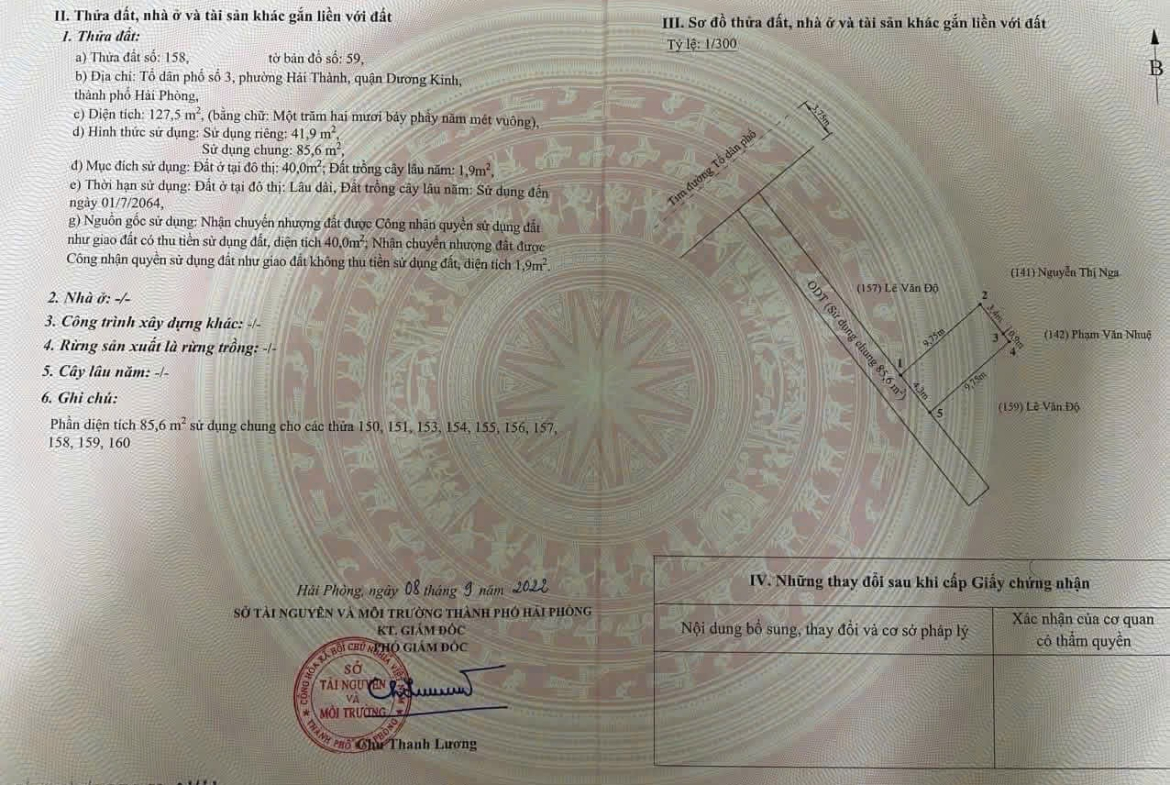 II. Thửa đất, nhà ở và tài sản khác gắn liền với đất
1. Thửa đất:
a) Thửa đất số: 158, tờ bản đồ số: 59,
b) Địa chỉ: Tổ dân phố số 3, phường Hải Thành, quận Dương Kinh,
thành phố Hải Phòng,
c) Diện tích: 127,5 m², (bằng chữ: Một trăm hai mươi bảy phẩy năm mét vuông),
d) Hình thức sử dụng: Sử dụng riêng: 41,9 m²,
Sử dụng chung: 85,6 m²,
đ) Mục đích sử dụng: Đất ở tại đô thị: 40,0m²; Đất trồng cây lâu năm: 1,9m²,
e) Thời hạn sử dụng: Đất ở tại đô thị: Lâu dài, Đất trồng cây lâu năm: Sử dụng đến
ngày 01/7/2064,
g) Nguồn gốc sử dụng: Nhận chuyển nhượng đất được Công nhận quyền sử dụng đất
như giao đất có thu tiền sử dụng đất, diện tích 40,0m²; Nhận chuyển nhượng đất được
Công nhận quyền sử dụng đất như giao đất không thu tiền sử dụng đất, diện tích 1,9m².
2. Nhà ở: -/-
3. Công trình xây dựng khác: -/-
4. Rừng sản xuất là rừng trồng: -/-
5. Cây lâu năm: -/-
6. Ghi chú:
Phần diện tích 85,6 m² sử dụng chung cho các thửa 150, 151, 153, 154, 155, 156, 157,
158, 159, 160
Hải Phòng, ngày 08 tháng 9 năm 2022
SỞ TÀI NGUYÊN VÀ MÔI TRƯỜNG THÀNH PHỐ HẢI PHÒNG
KT. GIÁM ĐỐC
PHÓ GIÁM ĐỐC
CỘNG HÒA XÃ HỘI CHỦ NGHĨA VIỆT NAM
SỞ
TÀI NGUYÊN
VÀ
MÔI TRƯỜNG
THÀNH PHỐ HẢI PHÒNG
Chu Thanh Lương
III. Sơ đồ thửa đất, nhà ở và tài sản khác gắn liền với đất
Tỷ lệ: 1/300
B
3,75m
Tim đường Tổ dân phố
(141) Nguyễn Thị Nga
(157) Lê Văn Độ
2
3,4m
ODT (Sử dụng chung 85,6 m²)
9,75m
3
0,9m
(142) Phạm Văn Nhuệ
4
1
4,3m
9,75m
5
(159) Lê Văn Độ
IV. Những thay đổi sau khi cấp Giấy chứng nhận
Nội dung bổ sung, thay đổi và cơ sở pháp lý
Xác nhận của cơ quan
có thẩm quyền